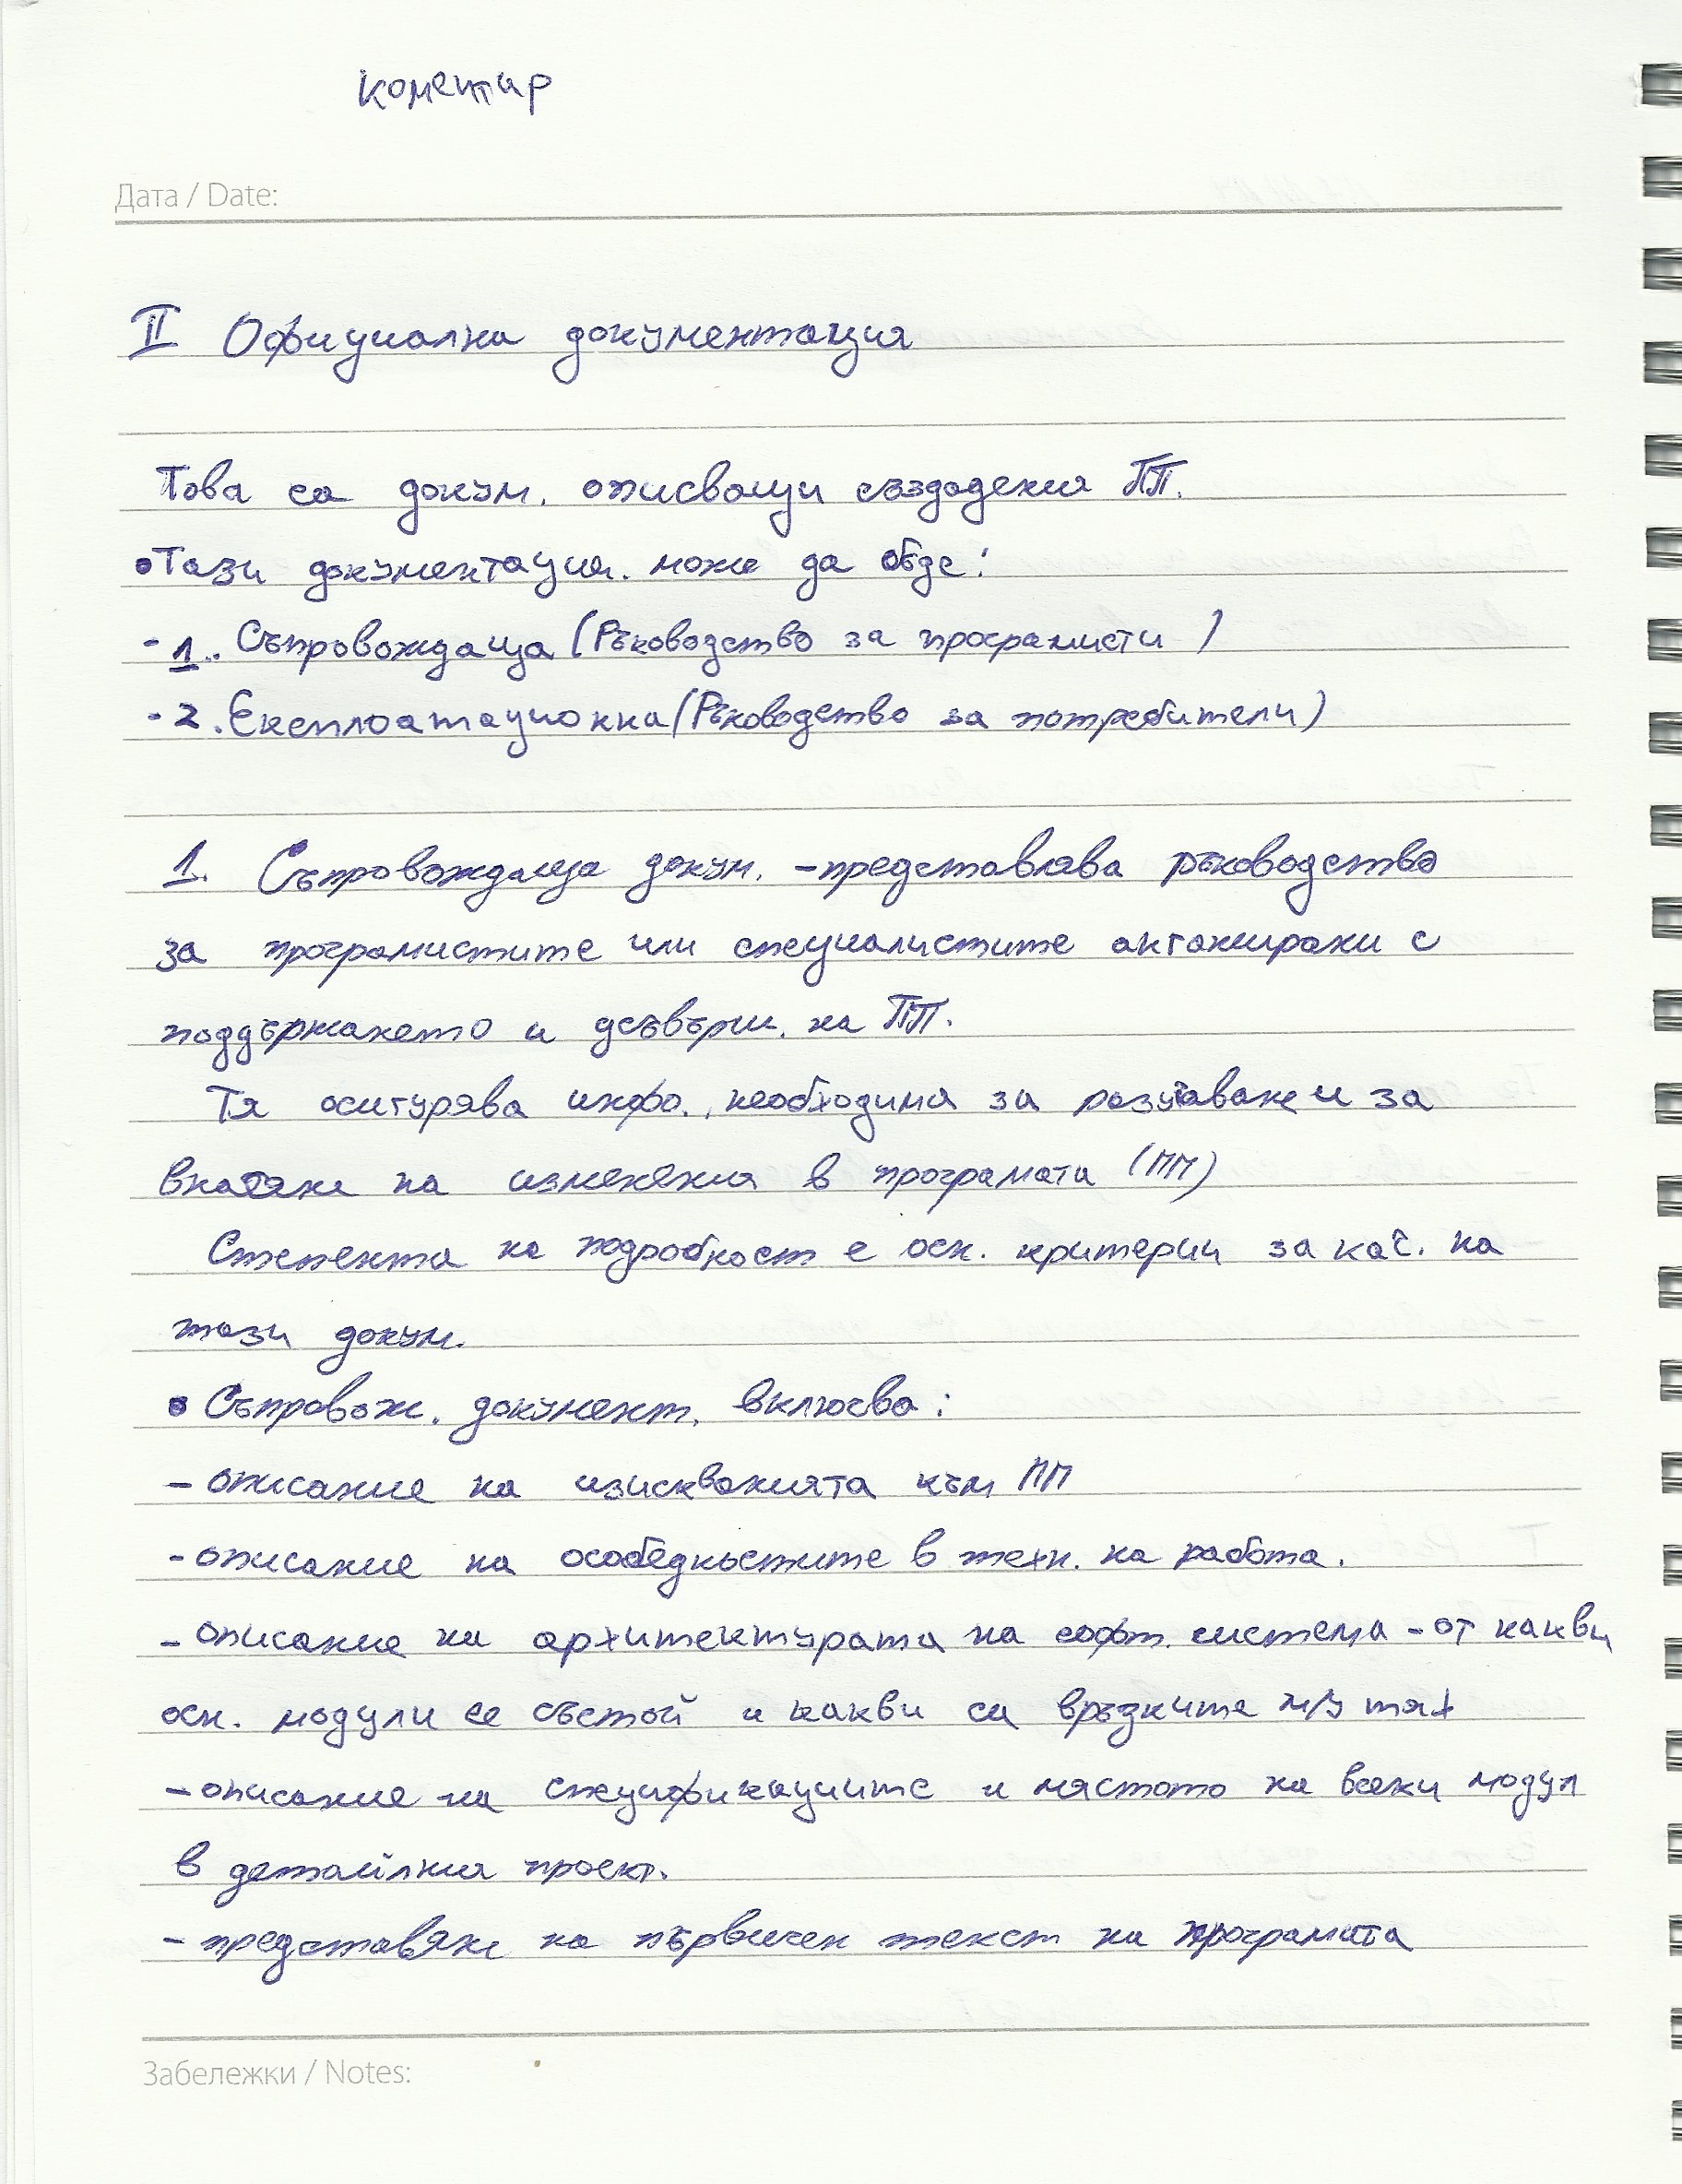 коментар
Дата / Date:
II Официална документация
Това са докум. описващи създадения ПП.
•Тази документация. може да бъде:
- 1. Съпровождаща (Ръководство за програмисти)
- 2. Експлоатационна (Ръководство за потребители)
1. Съпровождаща докум. - представлява ръководство
за програмистите или специалистите ангажирани с
поддържането и усъвърш. на ПП.
Тя осигурява инфо., необходима за разучаване и за
внасяне на изменения в програмата (ПП)
Степента на подробност е осн. критерии за кач. на
тази докум.
• Съпровож. документ. включва:
- описание на изискванията към ПП
- описание на особедностите в техн. на работа.
- описание на архитектурата на софт. система - от какви
осн. модули се състой и какви са връзките м/у тях
- описание на спецификациите и мястото на всеки модул
в детайлния проект.
- представяне на първичен текст на програмата
Забележки / Notes: